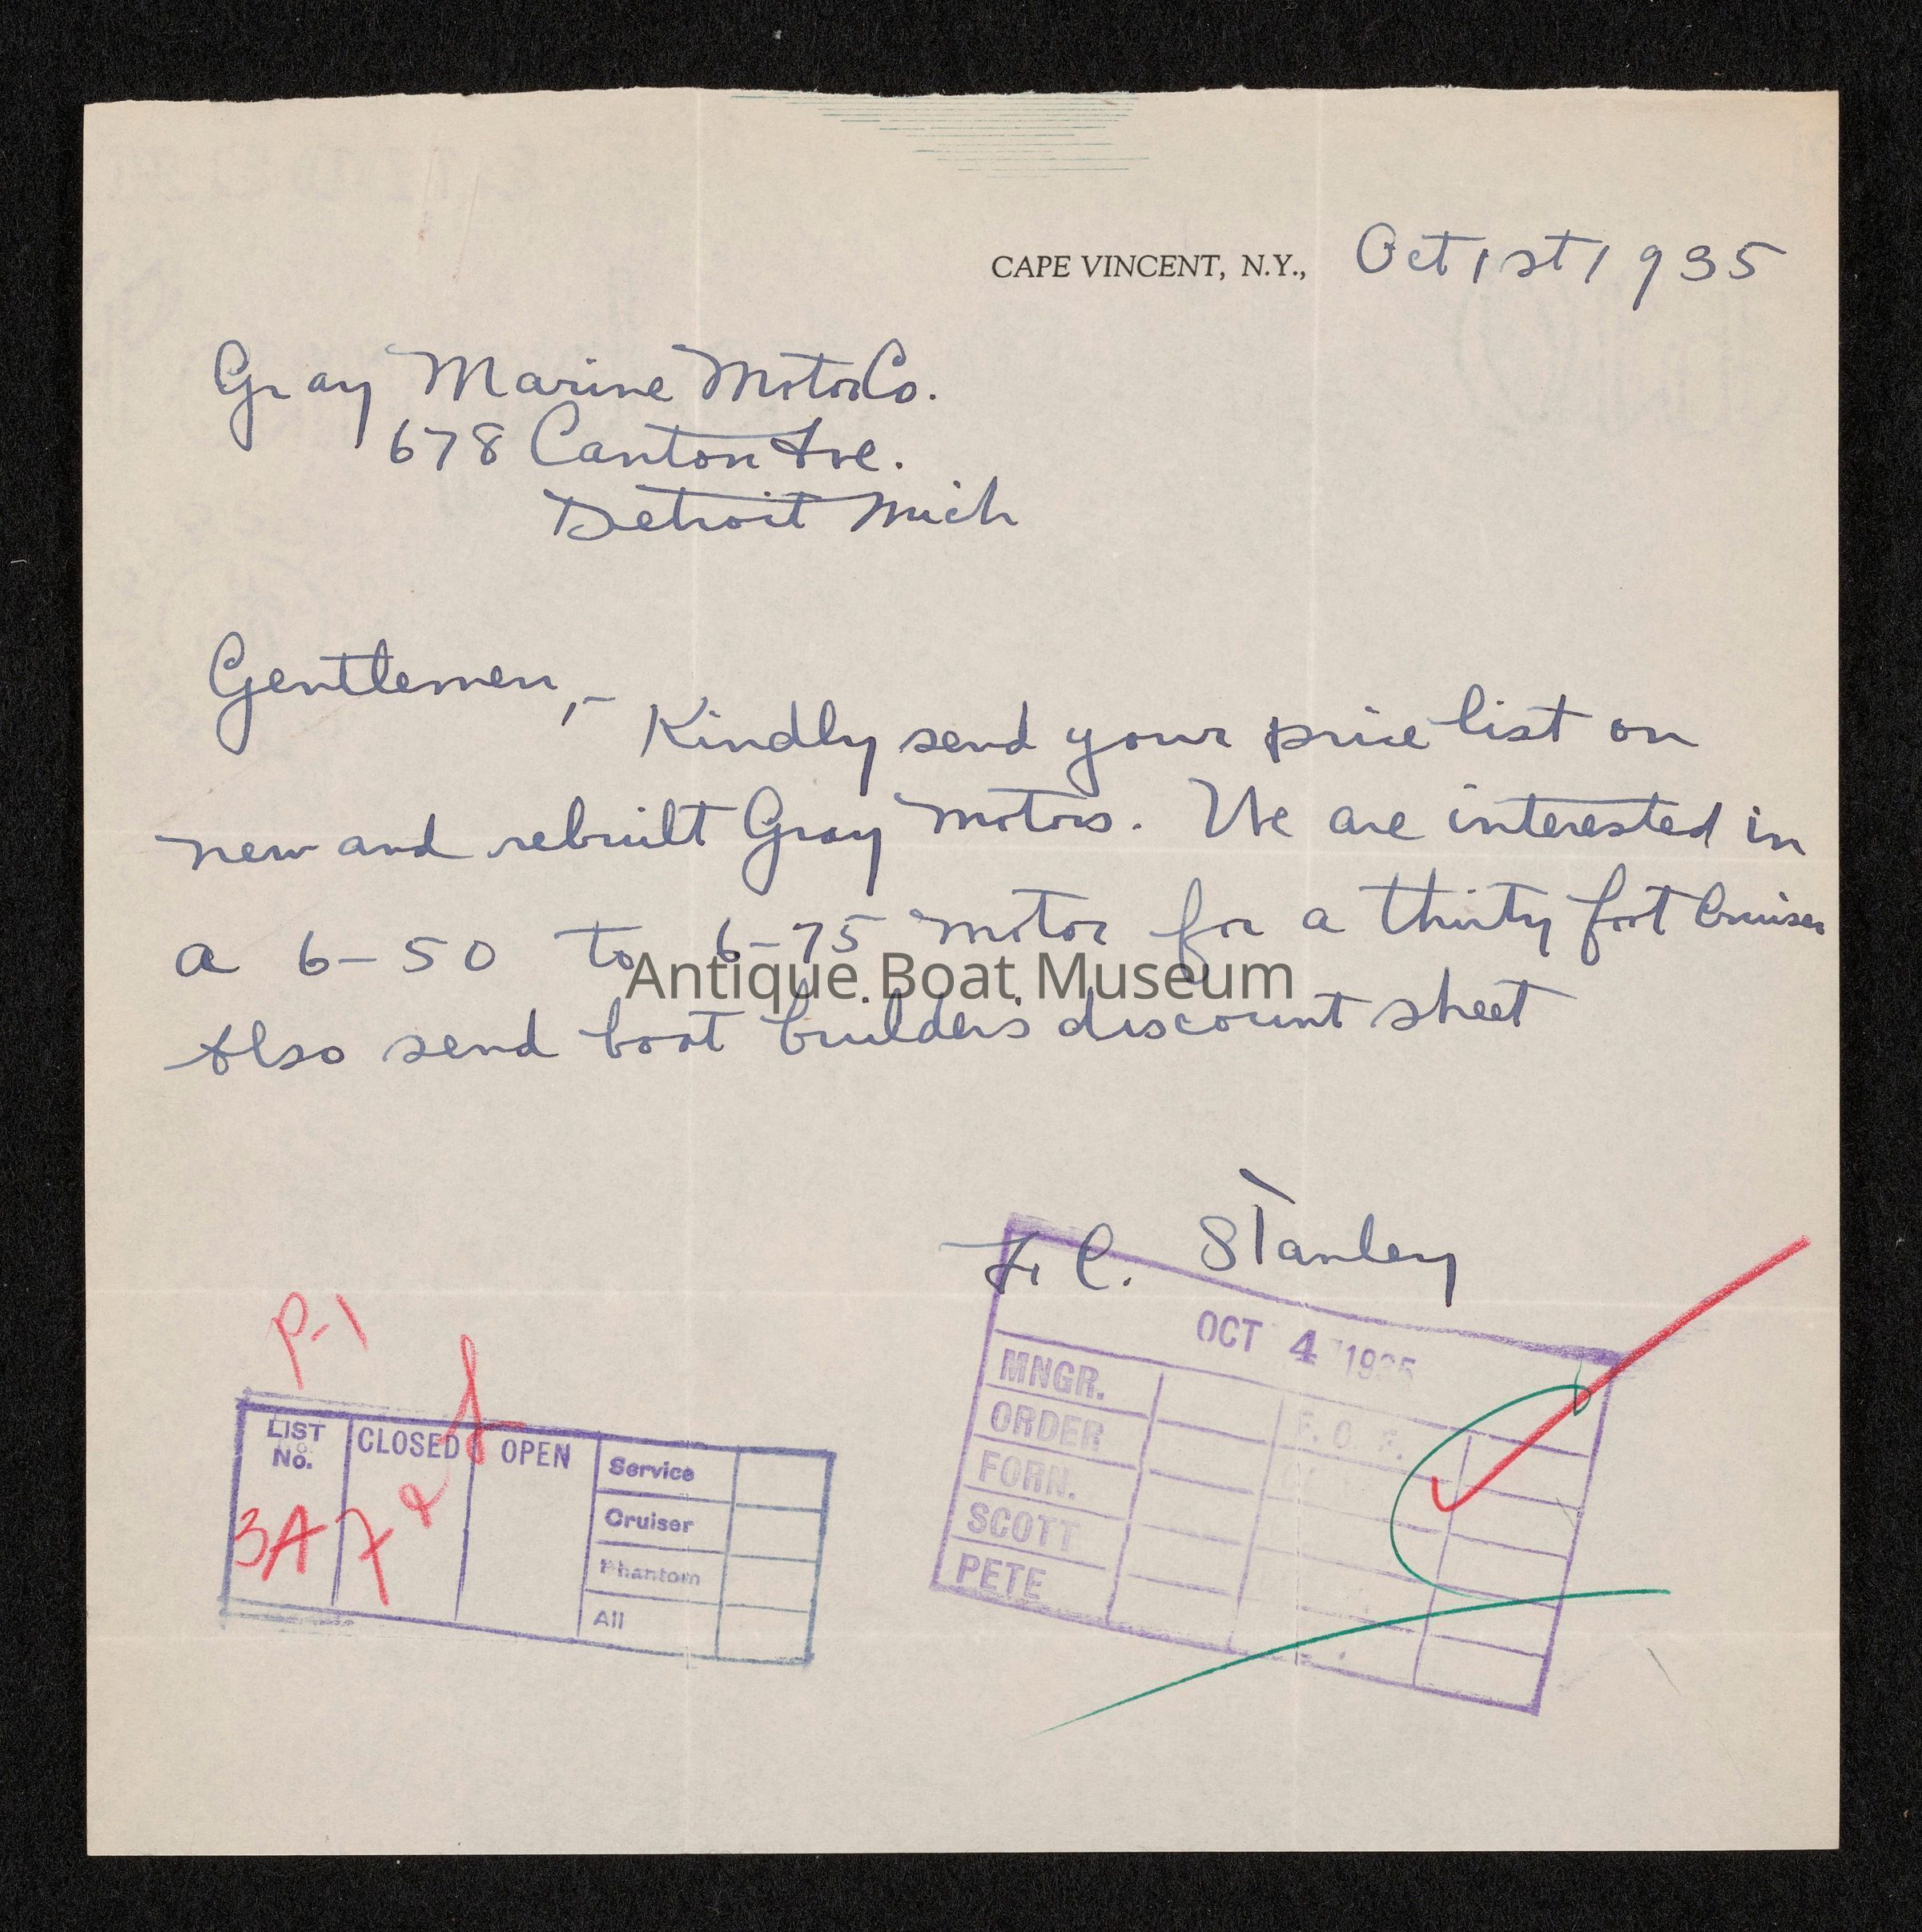 CAPE VINCENT, N.Y., Oct 1st 1935
Gray Marine Motor Co.
678 Canton Ave.
Detroit Mich
Gentlemen,-
Kindly send your price list on
new and rebuilt Gray motors. We are interested in
a 6-50 to 6-75 motor for a thirty foot Cruiser
Antique Boat Museum
Also send boat builders discount sheet
F. C. Stanley
P-1
LIST No.
CLOSED
OPEN
Service
Cruiser
Phantom
All
3A
7
OCT 4 1935
MNGR.
ORDER
FORN.
SCOTT
PETE